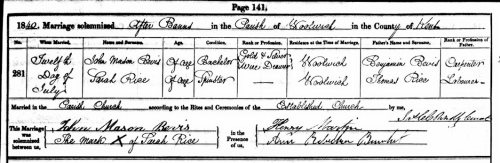 Page 141.
1840. Marriage solemnized after Banns in the Parish of Woolwich in the County of Kent
No. When Married. Name and Surname. Age. Condition. Rank or Profession. Residence at the Time of Marriage. Father's Name and Surname. Rank or Profession of Father.
281 Twelfth Day of July John Mason Bevis Of age Bachelor Gold & Silver Wire Drawer Woolwich Benjamin Bevis Carpenter
Sarah Rice Of age Spinster Woolwich Thomas Rice Labourer
Married in the Parish Church according to the Rites and Ceremonies of the Established Church by me,
This Marriage was solemnized between us, John Mason Bevis in the Presence of us, Henry Martin
The mark X of Sarah Rice Ann